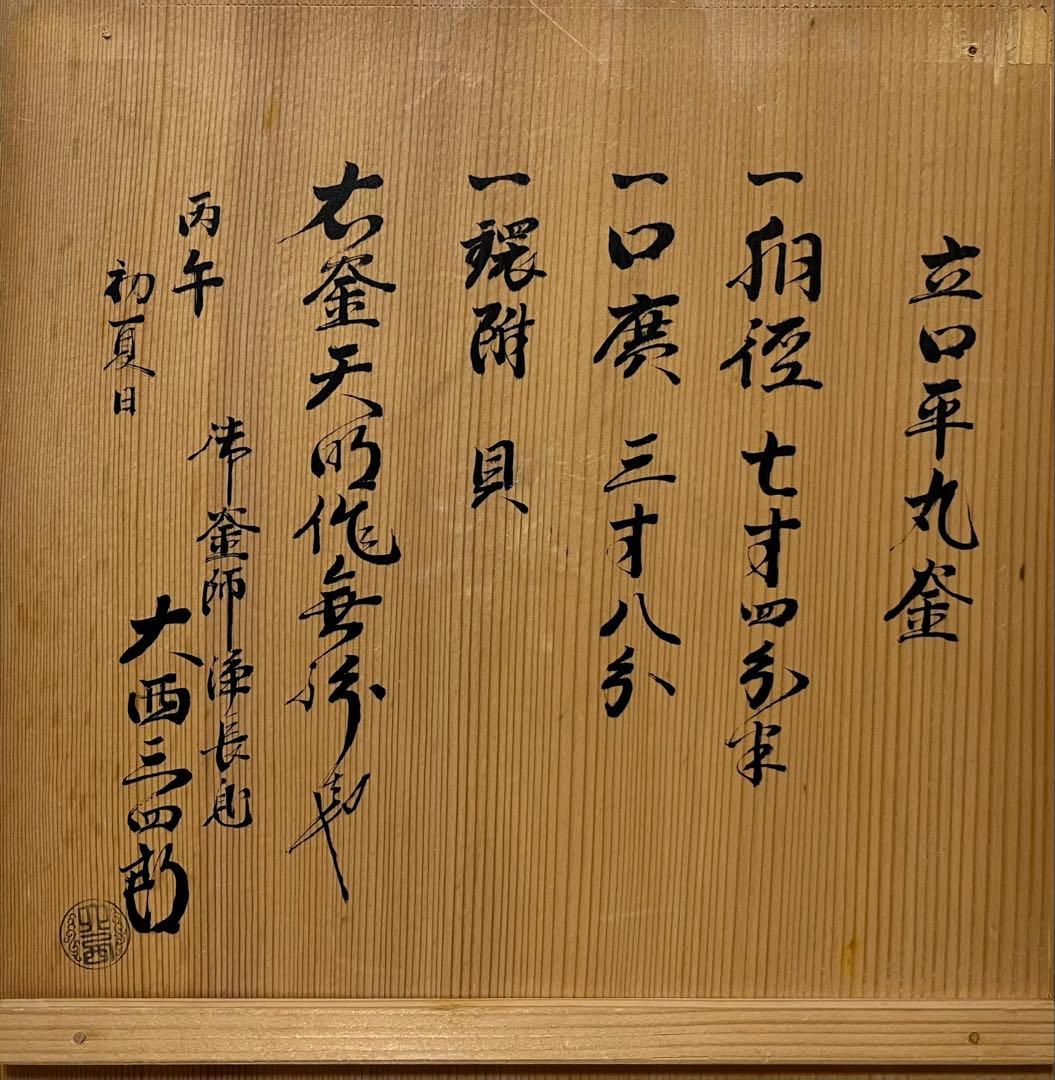 立口平丸釜
一胴径 七寸四分半
一口廣 三寸八分
一環附 貝
右釜天明作無疑者也
丙午
初夏日
御釜師浄長息
大西三四郎
大西